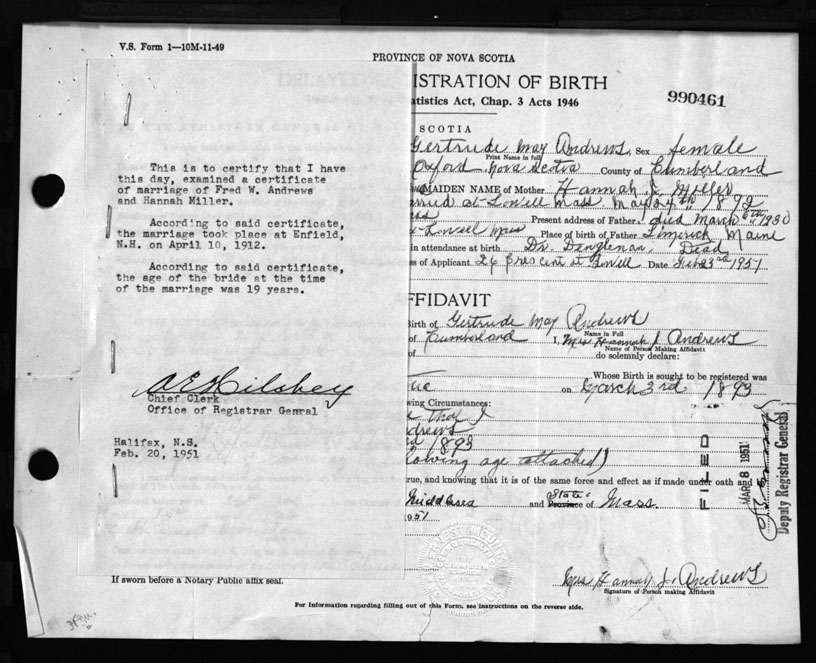 V.S. Form 1—10M-11-49
PROVINCE OF NOVA SCOTIA
ISTRATION OF BIRTH
atistics Act, Chap. 3 Acts 1946
990461
SCOTIA
Gertrude May Andrews, Sex female
Print Name in full
Oxford Nova Scotia County of Cumberland
MAIDEN NAME of Mother Hannah J. Miller
at Lowell Mass May 24th 1892
Present address of Father died March 6th 1930
Lowell Mass Place of birth of Father Limerick Maine
in attendance at birth Dr. Dead
s of Applicant 26 st Lowell Date Feb 23rd 1951
This is to certify that I have
this day, examined a certificate
of marriage of Fred W. Andrews
and Hannah Miller.
According to said certificate,
the marriage took place at Enfield,
N.H. on April 10, 1912.
According to said certificate,
the age of the bride at the time
of the marriage was 19 years.
Chief Clerk
Office of Registrar General
Halifax, N.S.
Feb. 20, 1951
FFIDAVIT
Birth of Gertrude May Andrews
Name in Full
of Cumberland I, Mrs Hannah J Andrews
Name of Person Making Affidavit
of do solemnly declare:
Whose Birth is sought to be registered was
on March 3rd 1893
wing Circumstances:
that I
drews
1893
lowing age attached)
rue, and knowing that it is of the same force and effect as if made under oath and
Middlesex and State Province of Mass.
1951
FILED
MAR 8 1951
Deputy Registrar General
If sworn before a Notary Public affix seal.
Mrs Hannah J. Andrews
Signature of Person making Affidavit
For Information regarding filling out of this Form, see instructions on the reverse side.